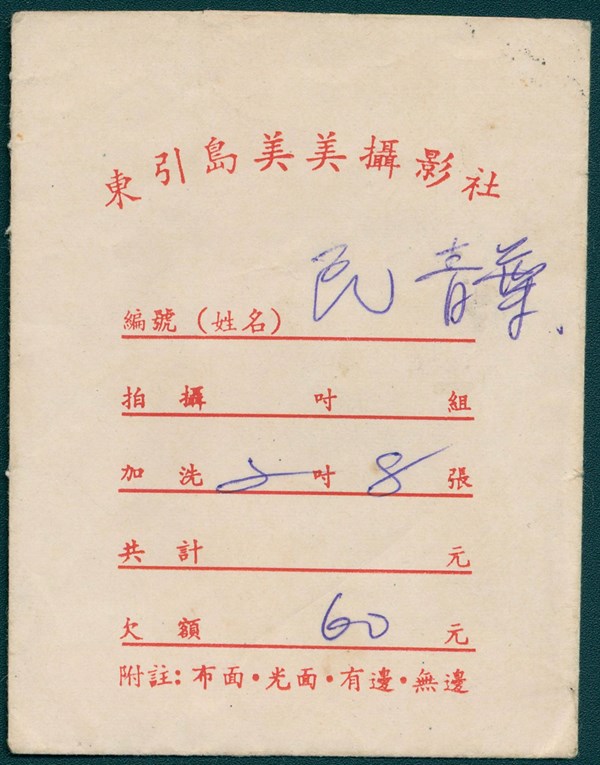 東引島美美攝影社
編號（姓名）民 青葉
拍攝 吋 組
加洗 2 吋 8 張
共計 元
欠額 60 元
附註：布面・光面・有邊・無邊